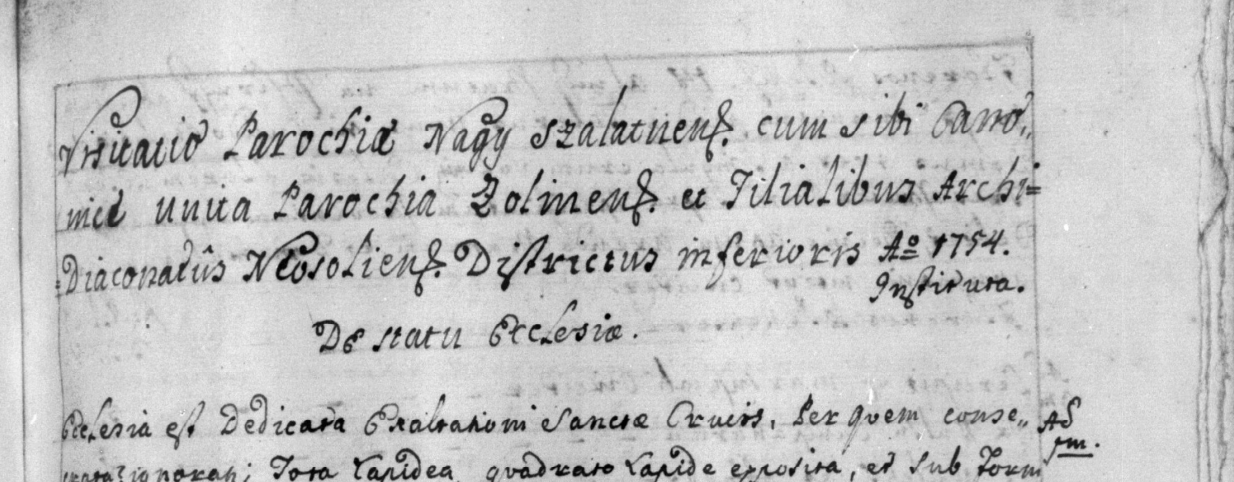 Visitatio Parochiæ Nagy Szalatnens. cum sibi Cano„
nicè unita Parochia Zolnens. et Filialibus Archi=
=Diaconatûs Neosoliens. Districtus inferioris Aō 1754.
Instituta.
De statu Ecclesiæ.
Ecclesia est Dedicata Exaltationi Sanctæ Crucis, Per quem conse„
Ad 1m.
crata? ignorat; Tota Lapidea, quadrato Lapide exposita, et sub Form